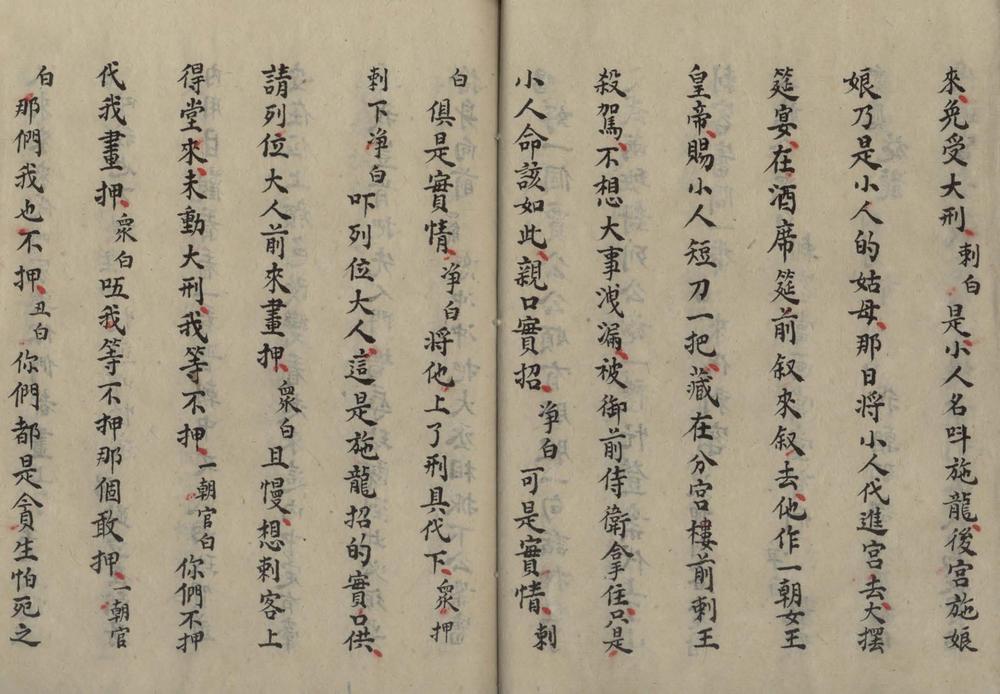 來、免受大刑、刺白 是、小人名呌施龍、後宮施娘
娘乃是小人的姑母、那日將小人代進宮去、大擺
筵宴、在酒席筵前叙來叙去、他作一朝女王
皇帝、賜小人短刀一把、藏在分宮樓前刺王
殺駕、不想大事洩漏、被御前侍衛拿住、只是
小人命該如此、親口實招、净白 可是實情、刺
白 俱是實情、净白 將他上了刑具代下、衆押
刺下净白 吓列位大人、這是施龍招的實口供、
請列位大人前來畫押、衆白 且慢、想刺客上
得堂來、未動大刑、我等不押、一朝官白 你們不押
代我畫押、衆白 哑我等不押那個敢押、一朝官
白 那們我也不押、丑白 你們都是貪生怕死之